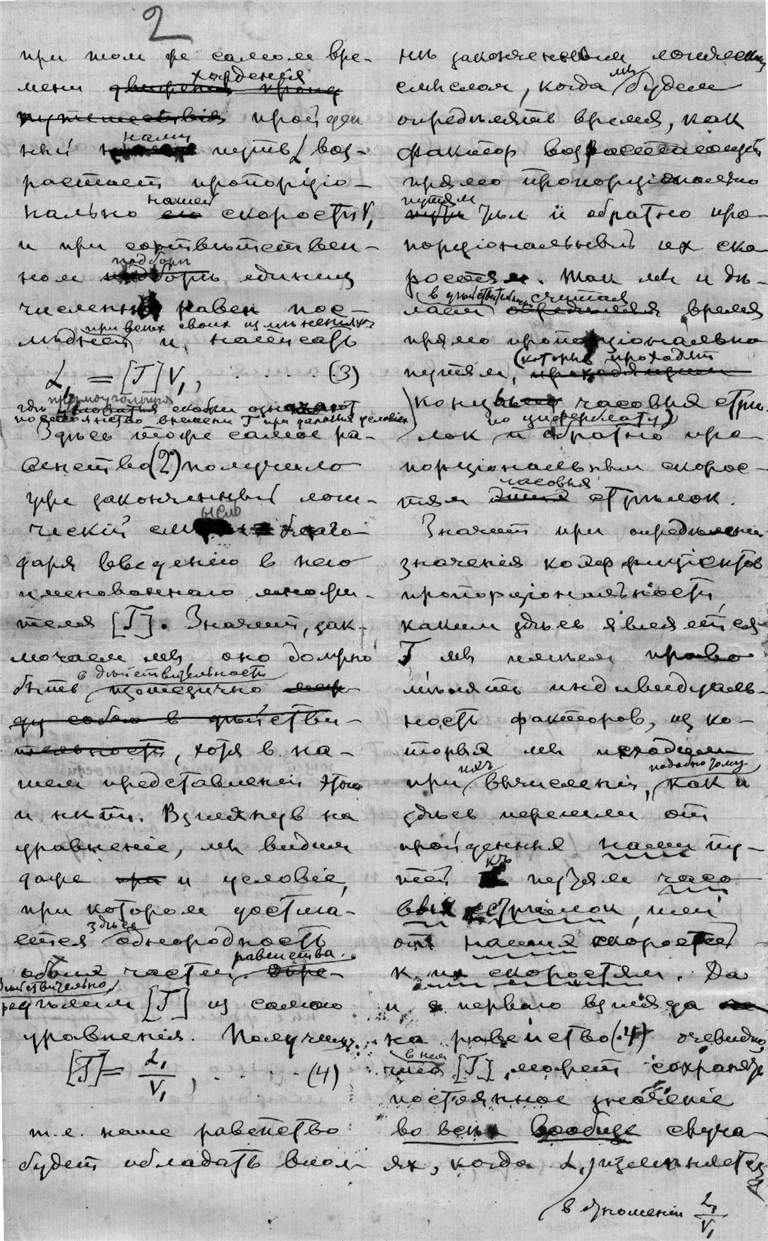 2
при томъ же самомъ вре-
мени хожденія
пройден
ный нами путь L воз-
растаетъ пропорціо-
нально нашей скорости V,
и при соотвѣтствен-
номъ подборѣ единицъ
численно равен пос-
лѣдней при всѣхъ своихъ измѣненіяхъ
L₁ = [T] V₁, . . . . . (3)
гдѣ прямоугольныя скобки означаютъ
постоянство времени T при данныхъ условіяхъ
Здѣсь тоже самое ра-
венство (2) получило
уже законченный логи-
ческій смыслъ благо
даря введенію в него
именованнаго множи-
теля [T]. Значитъ, зак-
лючаемъ мы, оно должно
быть в дѣйствительности
, хотя в на-
шемъ представленіи этого
и нѣтъ. Взглянувъ на
уравненіе, мы видимъ
даже и условіе,
при которомъ достига-
ется здѣсь однородность
обѣихъ частей равенства.
[T] из самого
уравненія. Получимъ
[T] = L₁/V₁, . . . . (4)
т. е. наше равенство
будетъ обладать впол-
нѣ законченнымъ логическимъ
смысломъ, когда мы будемъ
опредѣлять время, как
фактор возрастающій
прямо пропорціонально
путямъ и обратно про-
порціональный их ско
ростямъ. Такъ мы и дѣ-
лаемъ в дѣйствительности считая время
прямо пропорціонально
путямъ, которые проходятъ
концы часовыхъ стрѣ-
лок по циферблату и обратно про-
порціональнымъ скорос-
тямъ часовыхъ стрѣлок.
Значитъ при опредѣленіи
значенія коэффиціентовъ
пропорціональности
какимъ здѣсь является
T мы имѣемъ право
мѣнять индивидуаль-
ность факторов, из ко-
торыхъ мы исходимъ
при ихъ вычисленіи, подобно тому как и
здѣсь перешли от
пройденныхъ нами пу-
тей къ путямъ часо
выхъ стрѣлок, или
отъ нашихъ скоростей
к их скоростямъ. Да
и с перваго взгляда
на равенство (4) очевидно,
что в нем [T] может сохранять
постоянное значеніе
во всѣхъ вообще случа-
ях, когда L₁ измѣняется
в отношеніи L₁/V₁